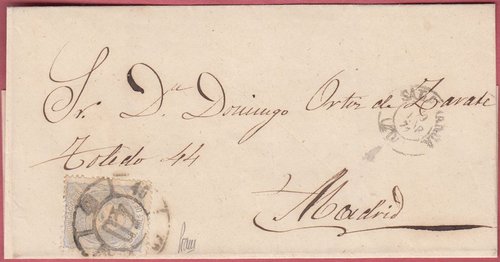 Sr. Dn. Domingo Ortiz de Zarate
Toledo 44
Madrid